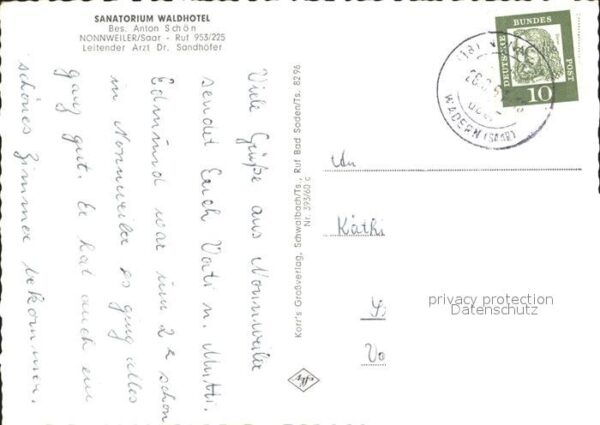 SANATORIUM WALDHOTEL
Bes. Anton Schön
NONNWEILER/Saar - Ruf 953/225
Leitender Arzt Dr. Sandhöfer
Viele Grüße aus Nonnweiler
sendet Euch Vati u. Mutti.
Edmund war um 2 schon
in Nonnweiler es ging alles
ganz gut. Er hat auch ein
schönes Zimmer bekommen.
Korr's Großverlag, Schwalbach/Ts., Ruf Bad Soden/Ts. 8296
Nr. 393/60 c
DEUTSCHE
BUNDES
POST
10
WADERN (SAAR)
An
Käthi
privacy protection
Datenschutz